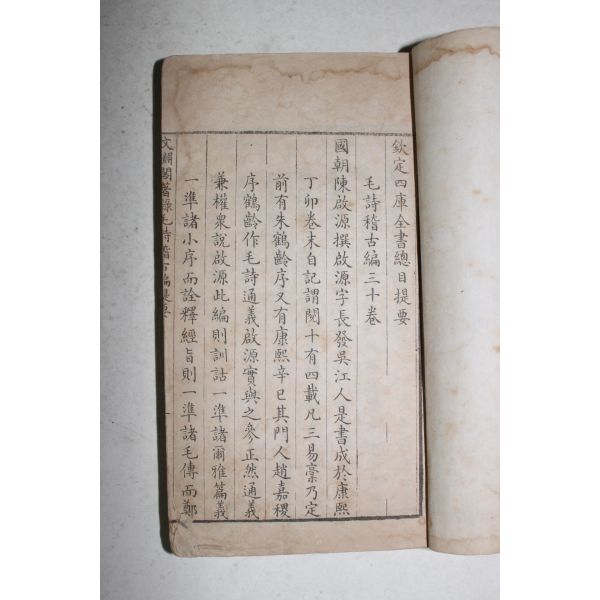 欽定四庫全書總目提要
毛詩稽古編三十卷
國朝陳啟源撰啟源字長發吳江人是書成於康熙
丁卯卷末自記謂閱十有四載凡三易稾乃定
前有朱鶴齡序又有康熙辛巳其門人趙嘉稷
序鶴齡作毛詩通義啟源實與之參正然通義
兼權衆說啟源此編則訓詁一準諸爾雅篇義
一準諸小序而詮釋經旨則一準諸毛傳而鄭
文瀾閣著錄毛詩稽古編提要